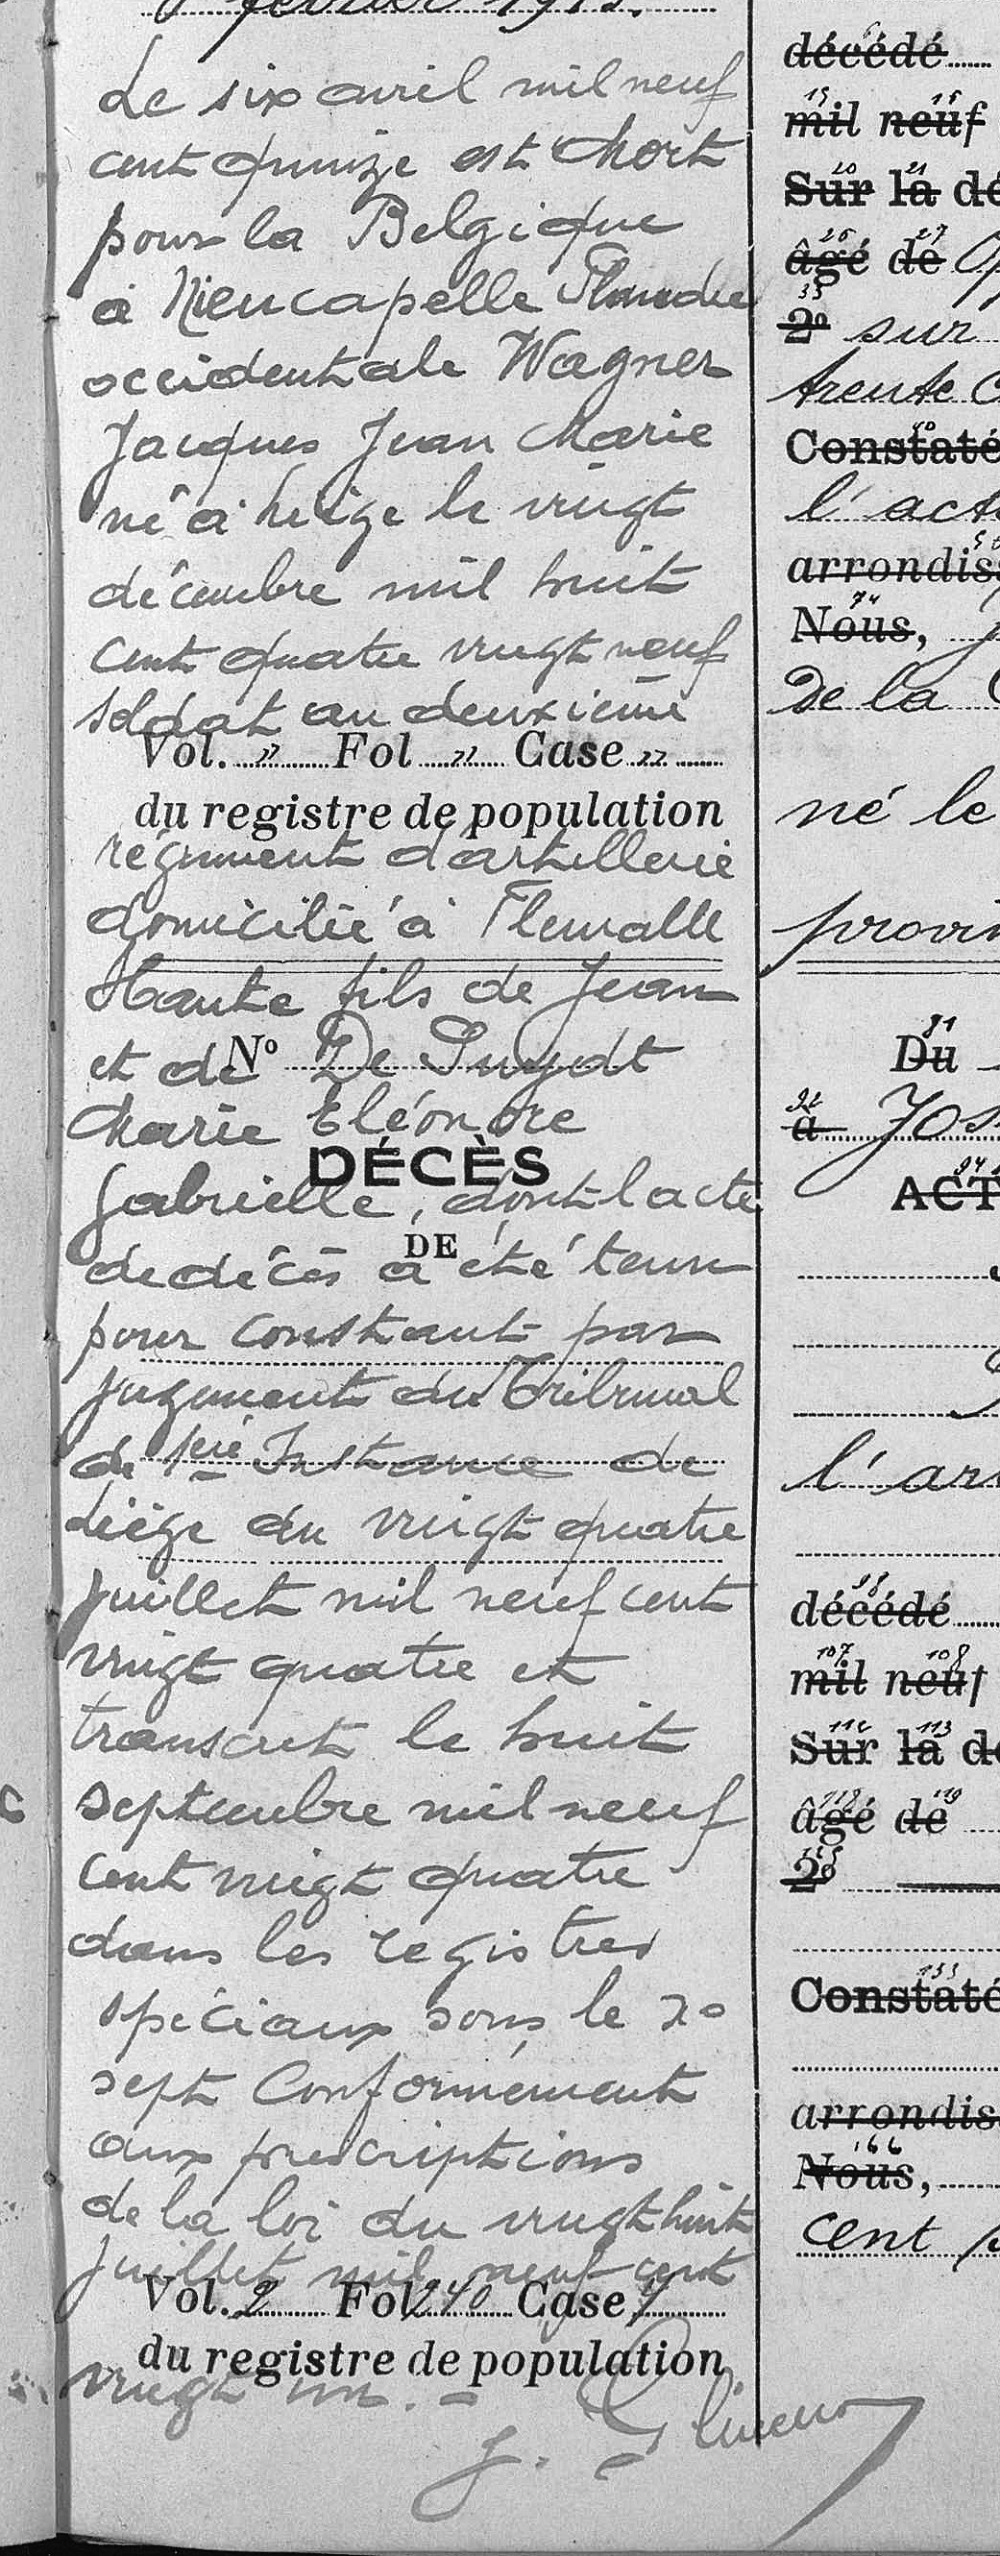 février 1915.
Le six avril mil neuf
cent quinze est Mort
pour la Belgique
à Nieucapelle Flandre
occidentale Wagner
Jacques Jean Marie
né à Liège le vingt
décembre mil huit
cent quatre vingt neuf
soldat au deuxième
Vol. " Fol " Case "
du registre de population
régiment d'artillerie
domicilié à Flemalle
Haute fils de Jean
et de De Puydt
N°
Marie Eléonore
DÉCÈS
Gabrielle, dont l'acte
DE
de décès a été tenu
pour constant par
jugement du Tribunal
de 1ère Instance de
Liège du vingt quatre
juillet mil neuf cent
vingt quatre et
transcrit le huit
septembre mil neuf
cent vingt quatre
dans les registres
spéciaux sous le n°
sept Conformément
aux prescriptions
de la loi du vingt huit
juillet mil neuf cent
Vol. 2 Fol 240 Case 4
du registre de population
vingt un. -
J.
décédé
15 16
mil neuf
20 21
Sur la dé
26 27
âgé de
35
2° sur
trente
Constaté
l'act
arrondiss
74
Nous,
De la
né le
provin
91
Du
92
à Jos
94
ACT
l'arr
décédé
107 108
mil neuf
112 113
Sur la dé
118 119
âgé de
125
2°
133
Constaté
arrondis
166
Nous,
cent